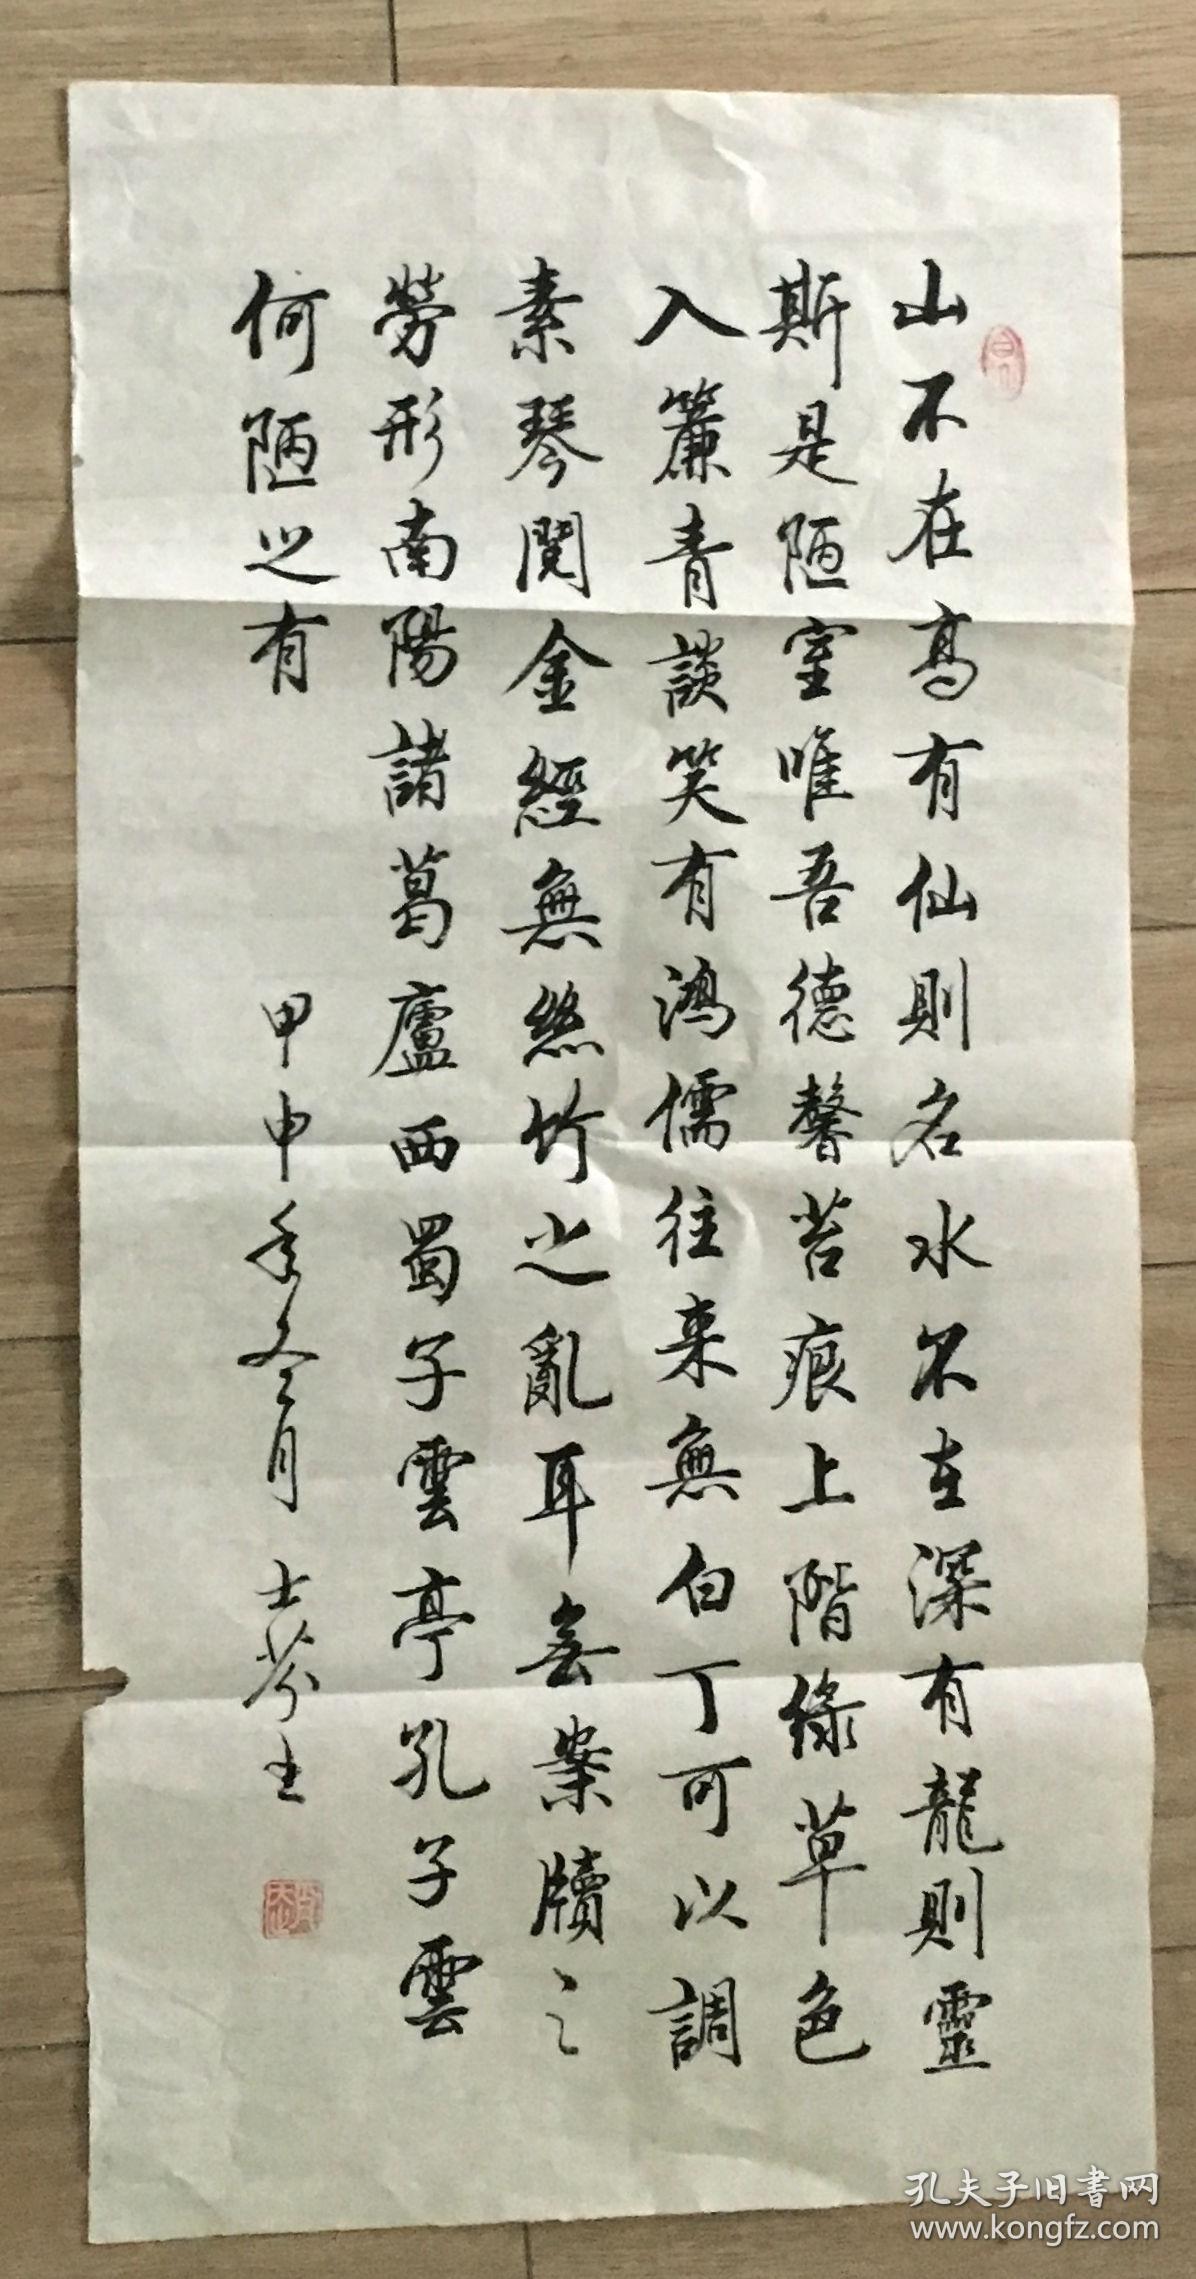 山不在高有仙則名水不在深有龍則靈
斯是陋室唯吾德馨苔痕上階綠草色
入簾青談笑有鴻儒往来無白丁可以調
素琴閱金經無絲竹之亂耳無案牘之
勞形南陽諸葛廬西蜀子雲亭孔子雲
何陋之有
甲申年冬月 士芬书
孔夫子旧書网
www.kongfz.com